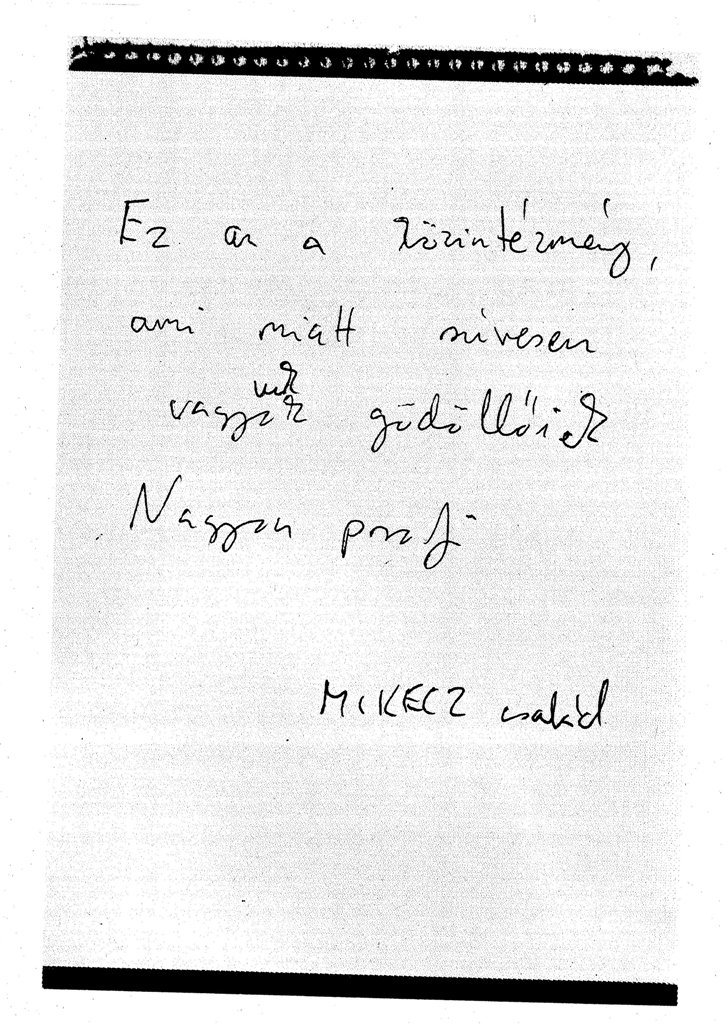 Ez az a közintézmény,
ami miatt szívesen
vagyunk gödöllőiek
Nagyon profi
MIKECZ család